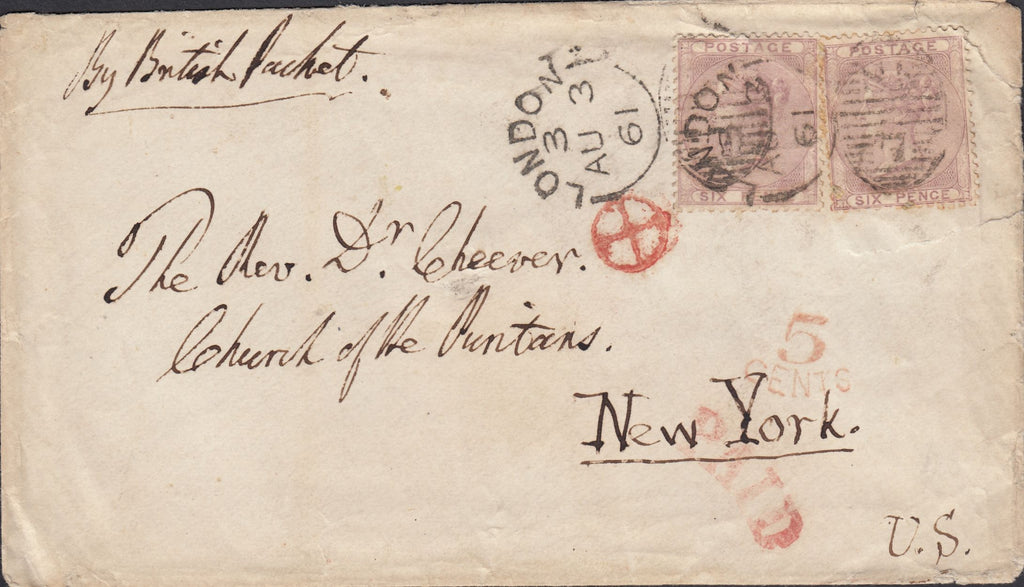 By British Packet.
LONDON
3
AU 3
61
POSTAGE
SIX PENCE
LONDON
3
AU 3
61
POSTAGE
SIX PENCE
The Rev. Dr. Cheever.
Church of the Puritans.
5
CENTS
New York.
PAID
U.S.